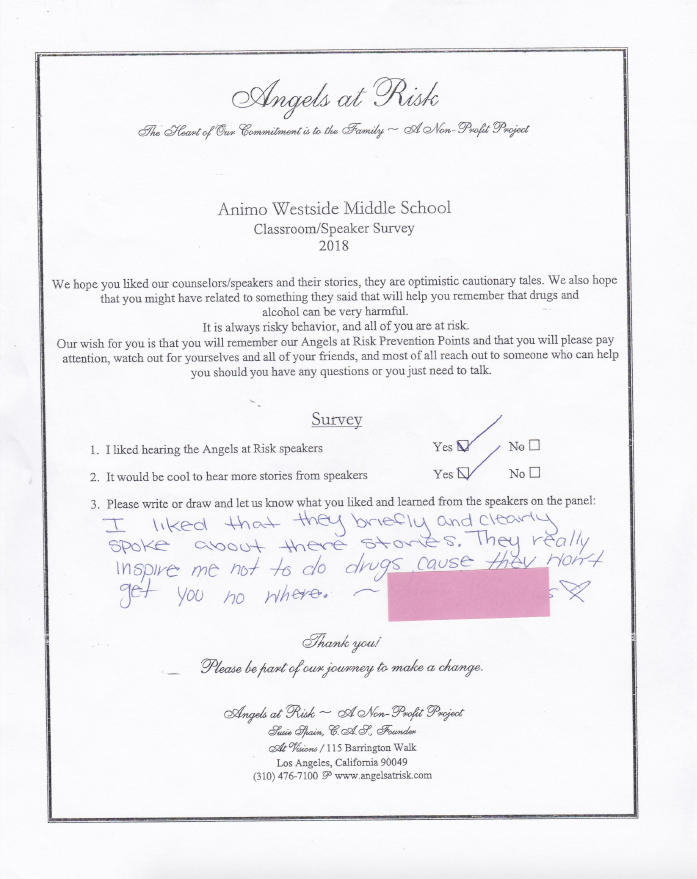 Angels at Risk
The Heart of Our Commitment is to the Family ~ A Non-Profit Project
Animo Westside Middle School
Classroom/Speaker Survey
2018
We hope you liked our counselors/speakers and their stories, they are optimistic cautionary tales. We also hope
that you might have related to something they said that will help you remember that drugs and
alcohol can be very harmful.
It is always risky behavior, and all of you are at risk.
Our wish for you is that you will remember our Angels at Risk Prevention Points and that you will please pay
attention, watch out for yourselves and all of your friends, and most of all reach out to someone who can help
you should you have any questions or you just need to talk.
Survey
1. I liked hearing the Angels at Risk speakers Yes ☑ No ☐
2. It would be cool to hear more stories from speakers Yes ☑ No ☐
3. Please write or draw and let us know what you liked and learned from the speakers on the panel:
I liked that they briefly and clearly
spoke about there stories. They really
inspire me not to do drugs cause they won't
get you no where. ~ s
Thank you!
Please be part of our journey to make a change.
Angels at Risk ~ A Non-Profit Project
Susie Spain, C.A.S., Founder
At Visions / 115 Barrington Walk
Los Angeles, California 90049
(310) 476-7100 www.angelsatrisk.com